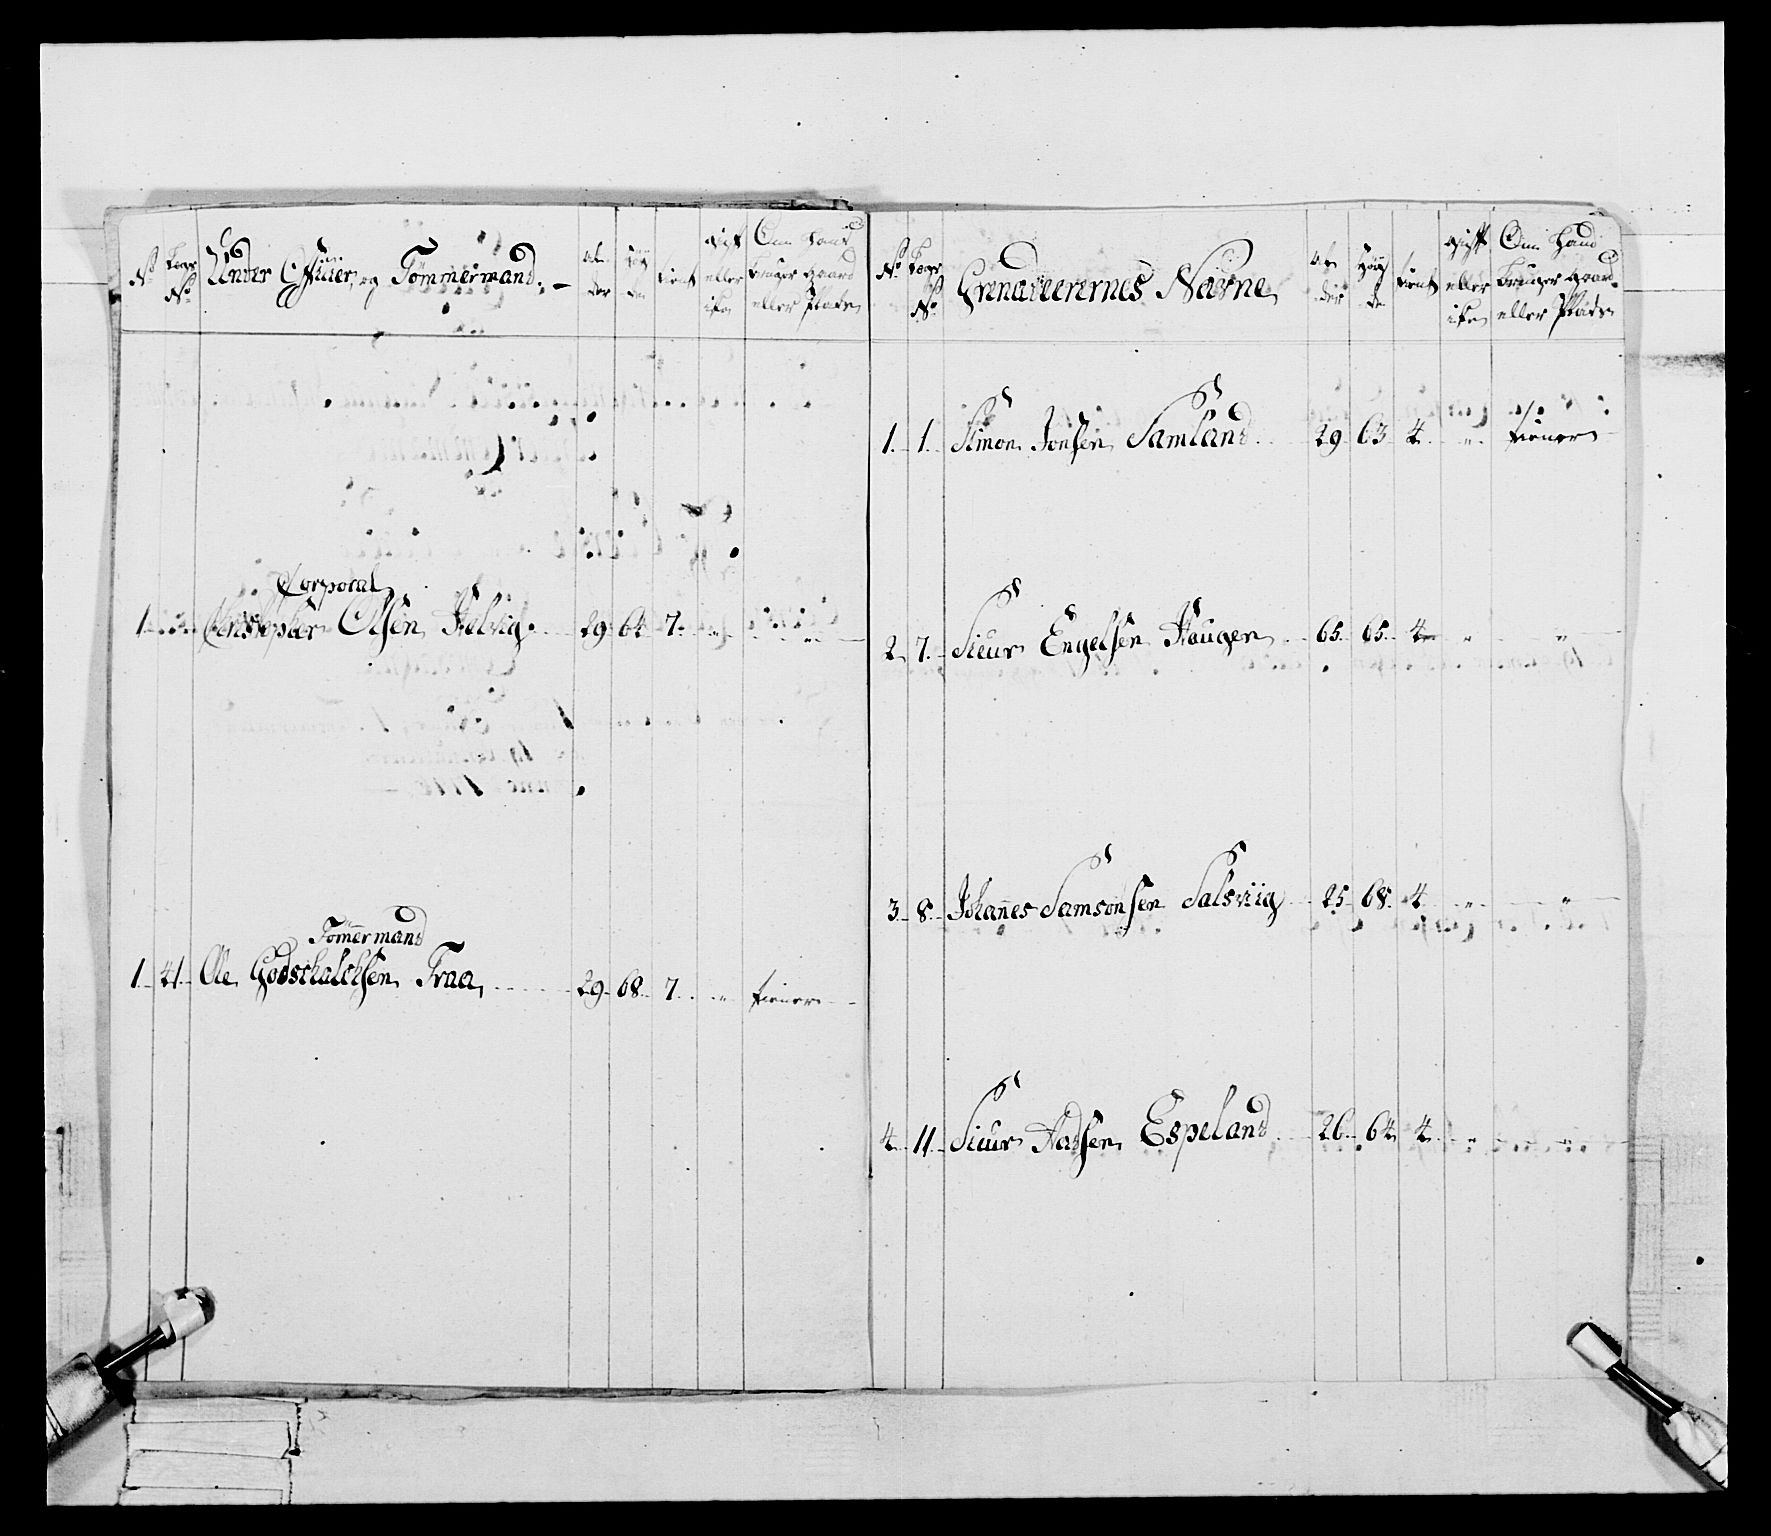 No Lægs No Under Officier og Tömmermand. Al der Höy de tient gift eller ikke Om Hand bruger Gaard eller Plads
Corporal
1 Christopher Olsen Helvig 29 64 7 " "
Tömmermand
1 41 Ole Godschalchsen Traa 29 68 7 " tiener
No Lægs No Grenadeerernes Navne Al der Höy de tient gift eller ikke Om Hand bruger Gaard eller Plads
1 1 Simon Jonsen Samland 29 63 4 " tiener
2 7 Siur Engelsen Hougen 65 65 4 " "
3 8 Johannes Samsonsen Salsviig 25 68 4 " "
4 11 Siur Aadsen Espeland 26 64 4 " "